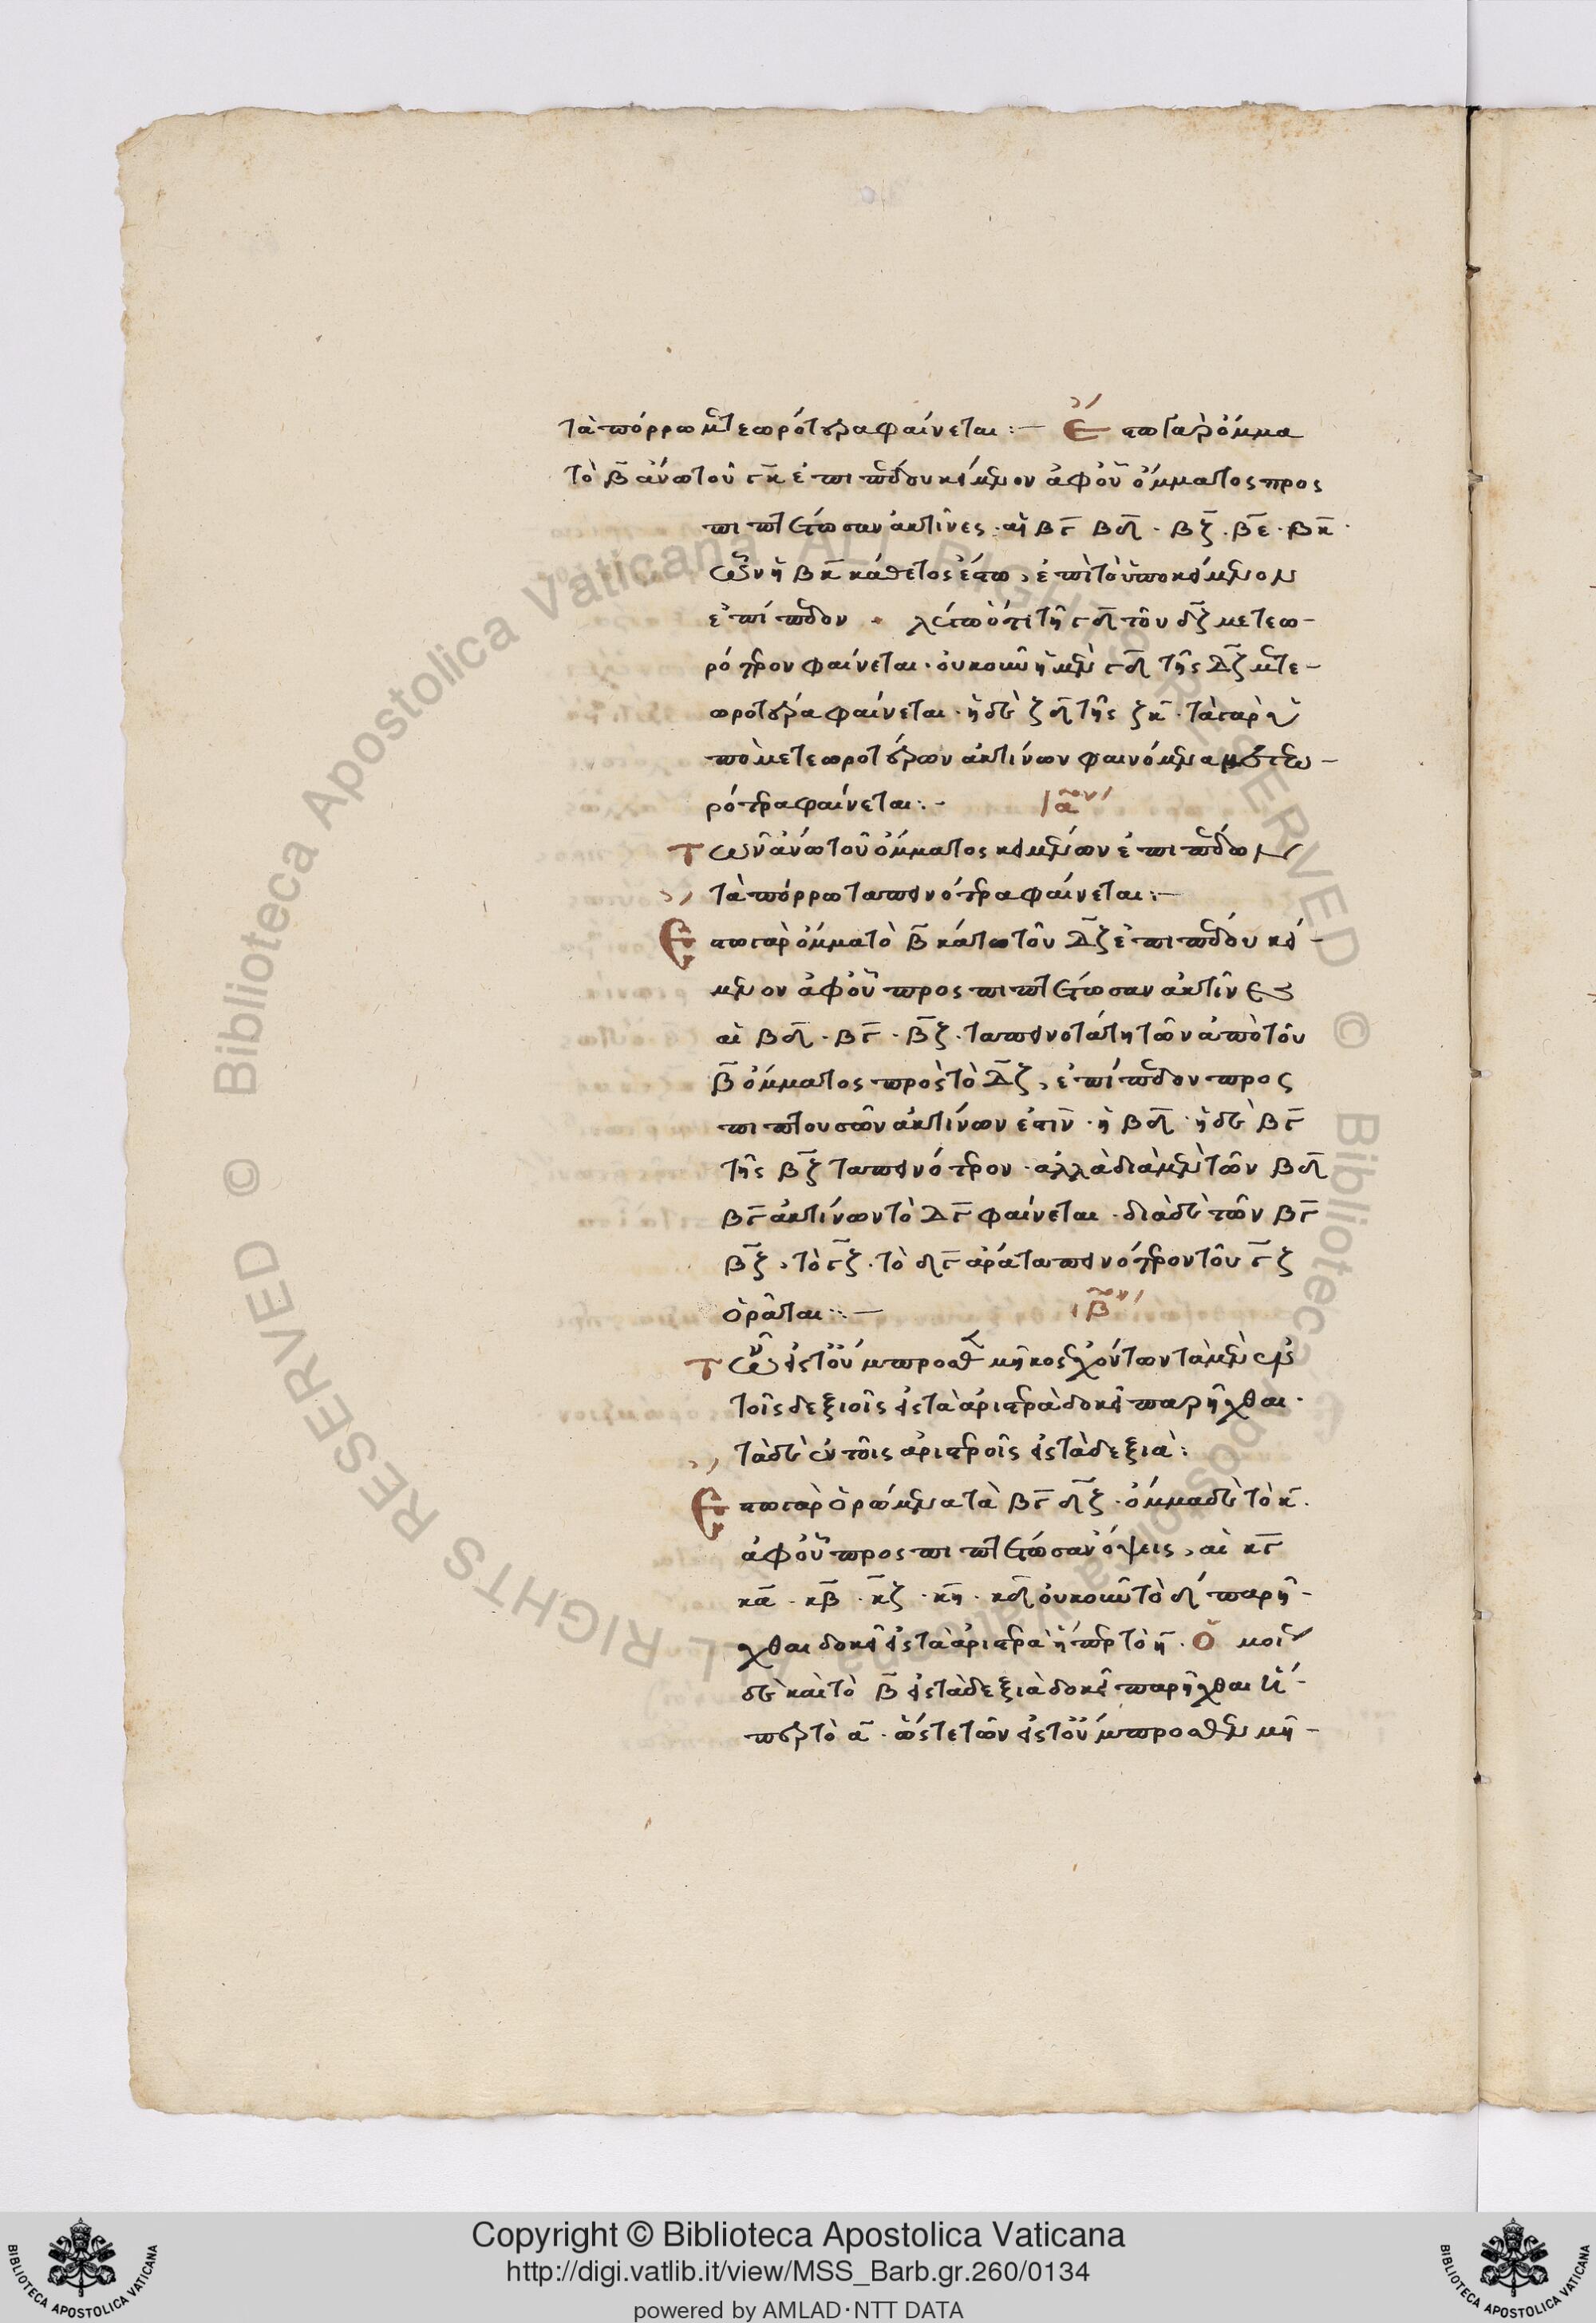 τὰ πόρρω μετεωρότερα φαίνεται:— Ἔστω γὰρ ὄμμα
τὸ β̄ ἄνω τοῦ γ̄κ̄ ἐπιπέδου κείμενον ἀφ' οὗ ὄμματος προς
πιπτέτωσαν ἀκτῖνες. αἱ βγ̄ βδ̄. βζ̄. βε̄. βκ̄.
ὧν ἡ βκ̄ κάθετος ἔστω, ἐπὶ τὸ ὑποκείμενον
ἐπίπεδον. λέγω ὅτι τὴ γδ̄ τοῦ δζ̄ μετεω-
ρότερον φαίνεται. οὐκοῦν ἡ μὲν γδ̄ τῆς δζ̄ μετε-
ωροτέρα φαίνεται. ἡ δὲ ζδ̄ τῆς ζκ̄. τὰ γὰρ ὑ
πὸ μετεωροτέρων ἀκτίνων φαινόμενα μετεω-
ρότερα φαίνεται:- ιᾱον
Τῶν ἄνω τοῦ ὄμματος κειμένων ἐπιπέδων
τὰ πόρρω ταπεινότερα φαίνεται:—
Ἔστω γὰρ ὄμμα τὸ β̄ κάτω τοῦ δζ̄ ἐπιπέδου κεί-
μενον ἀφ' οὗ προς πιπτέτωσαν ἀκτῖνες
αἱ βδ̄. βγ̄. βζ̄. ταπεινοτάτη τῶν ἀπὸ τοῦ
β̄ ὄμματος πρὸς τὸ δζ̄, ἐπίπεδον προς
πιπτουσῶν ἀκτίνων ἐστὶν. ἡ βδ̄. ἡ δὲ βγ̄
τῆς βζ̄ ταπεινότερον. ἀλλὰ διὰ μὲν τῶν βδ̄
βγ̄ ἀκτίνων τὸ δγ̄ φαίνεται. διὰ δὲ τῶν βγ̄
βζ̄, τὸ γζ̄. τὸ δγ̄ ἄρα ταπεινότερον τοῦ γζ̄
ὁρᾶται::— ιβ̄ον
Τῶν εἰς τοὔμπροσθεν μῆκος ἐχόντων τὰ μὲν ἐν
τοῖς δεξιοῖς εἰς τὰ ἀριστερὰ δοκεῖ παρῆχθαι.
τὰ δὲ ἐν τοῖς ἀριστεροῖς εἰς τὰ δεξιά:
Ἔστω γὰρ ὁρώμενα τὰ βγ̄ δζ̄. ὄμμα δὲ τὸ κ̄.
ἀφ' οὗ προς πιπτέτωσαν ὄψεις, αἱ κγ̄
κᾱ. κβ̄. κζ̄. κη̄. κδ̄ οὐκοῦν τὸ δ̄ παρῆ-
χθαι δοκεῖ εἰς τὰ ἀριστερὰ ἤπερ τὸ η̄. Ὁμοίως
δὲ καὶ τὸ β̄ εἰς τὰ δεξιὰ δοκεῖ παρῆχθαι ἤ-
περ τὸ ᾱ. ὥστε τῶν εἰς τοὔμπροσθεν μῆ-
Copyright © Biblioteca Apostolica Vaticana
http://digi.vatlib.it/view/MSS_Barb.gr.260/0134
powered by AMLAD·NTT DATA